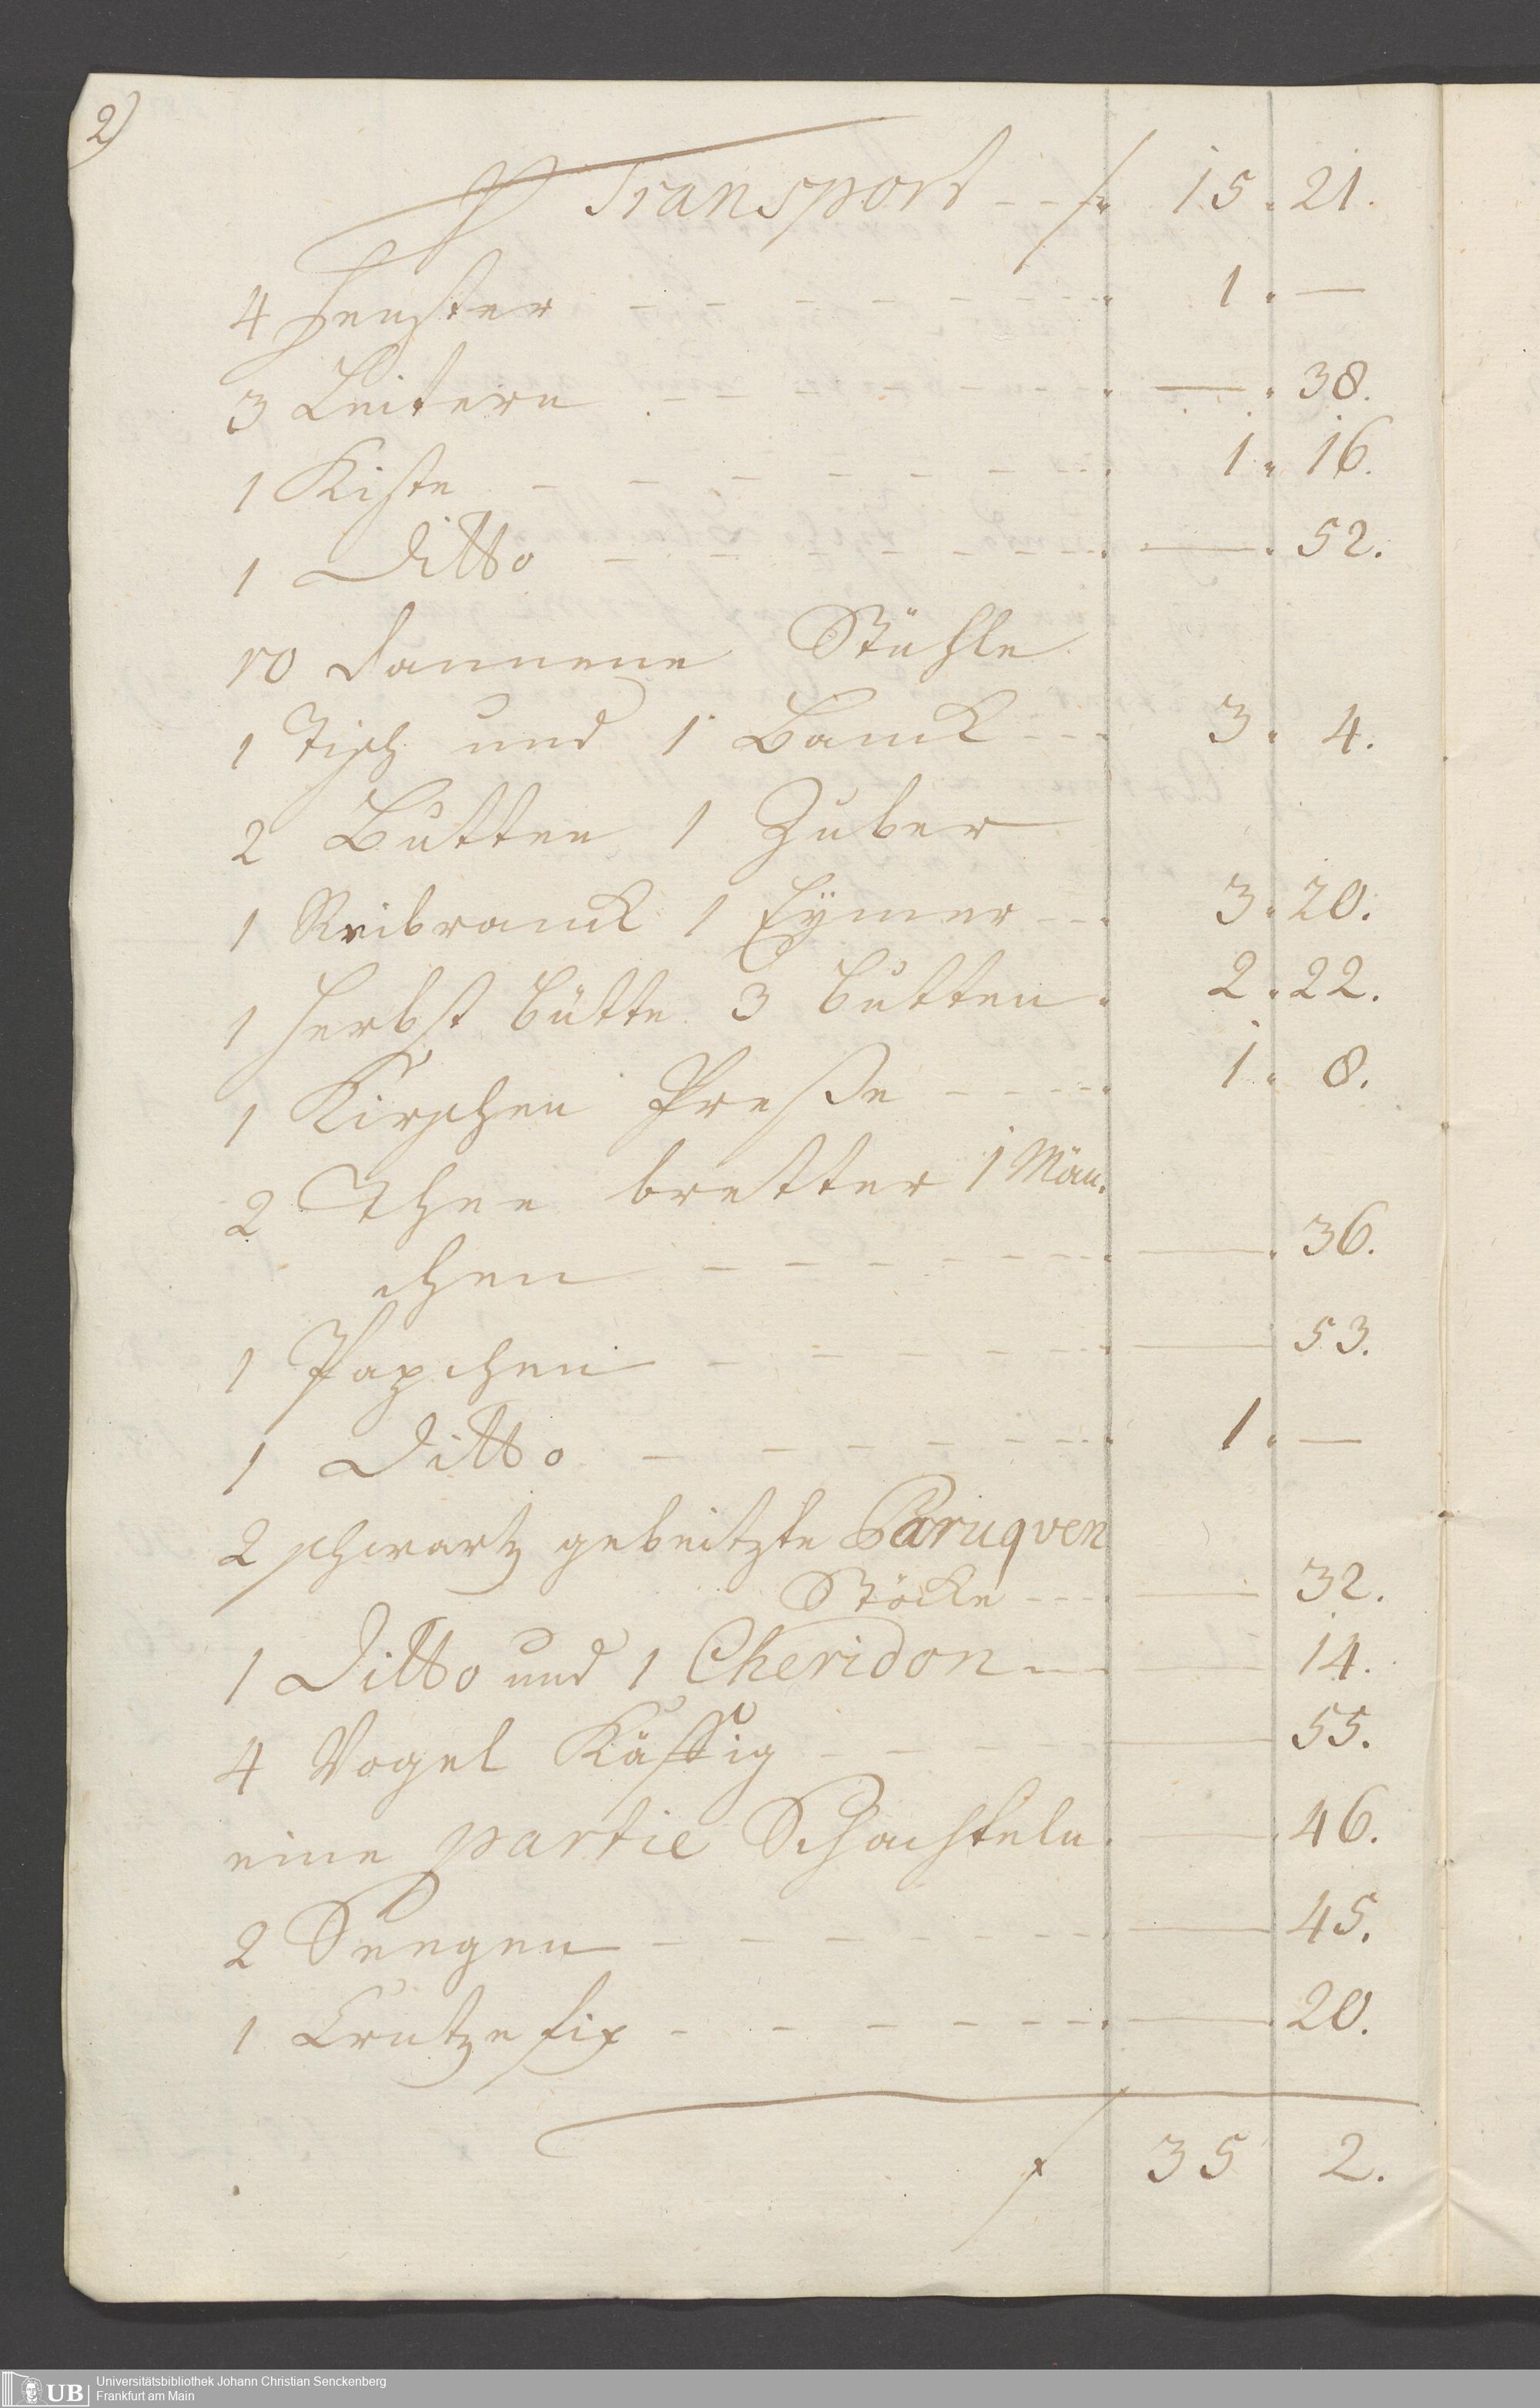 2)
P Transport - - f. 15. 21.
4 Fenster - - - - - - - 1. —
3 Leitern - - - - - - — . 38.
1 Kiste - - - - - - - 1. 16.
1 Ditto - - - - - - - — . 52.
10 dannene Stühle
1 Tisch und 1 Banck - - - 3. 4.
2 Bütten 1 Zuber
1 Reibranck 1 Eÿmer - - . 3. 20.
1 Herbst bütte 3 butten . 2. 22.
1 Kirschen Preße - - - - 1. 8.
2 Thee bretter 1 Män.
chen - - - - - - — . 36.
1 Papchen - - - - - — 53.
1 Ditto - - - - - - 1. —
2 schwartz gebeitzte Paruqven
Stöcke - - - — 32.
1 Ditto und 1 Cheridon - - — 14.
4 Vogel Käffig - - - — 55.
eine partie Schachteln. — . 46.
2 Seegen - - - - - - — 45.
1 Crutzefix - - - - - - — . 20.
f 35 2.
UB
Universitätsbibliothek Johann Christian Senckenberg
Frankfurt am Main